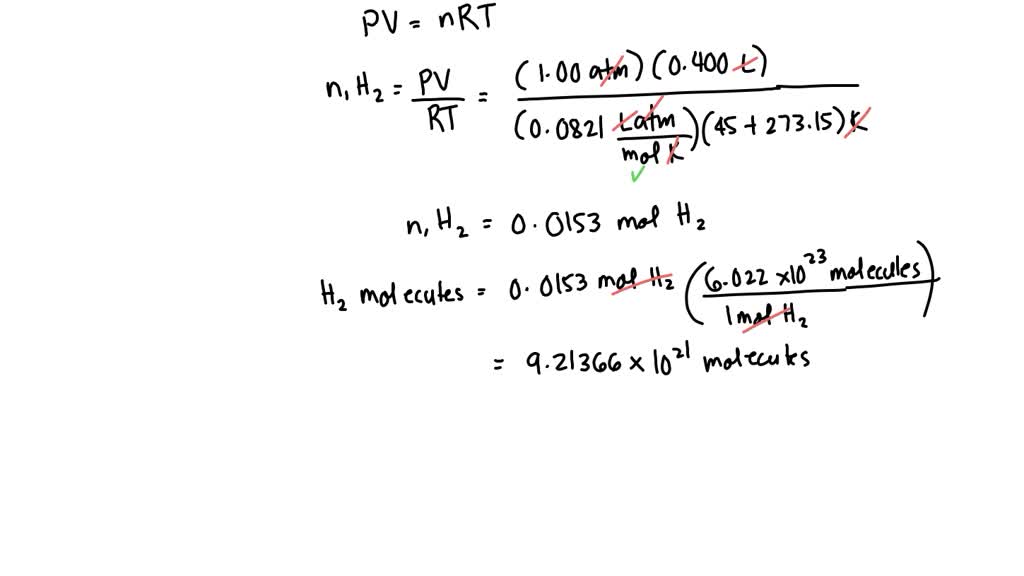 PV = nRT
n, H₂ = PV/RT = (1.00 atm)(0.400 L)/(0.0821 L atm/mol K)(45 + 273.15) K
n, H₂ = 0.0153 mol H₂
H₂ molecules = 0.0153 mol H₂ (6.022 x 10²³ molecules/1 mol H₂)
= 9.21366 x 10²¹ molecules